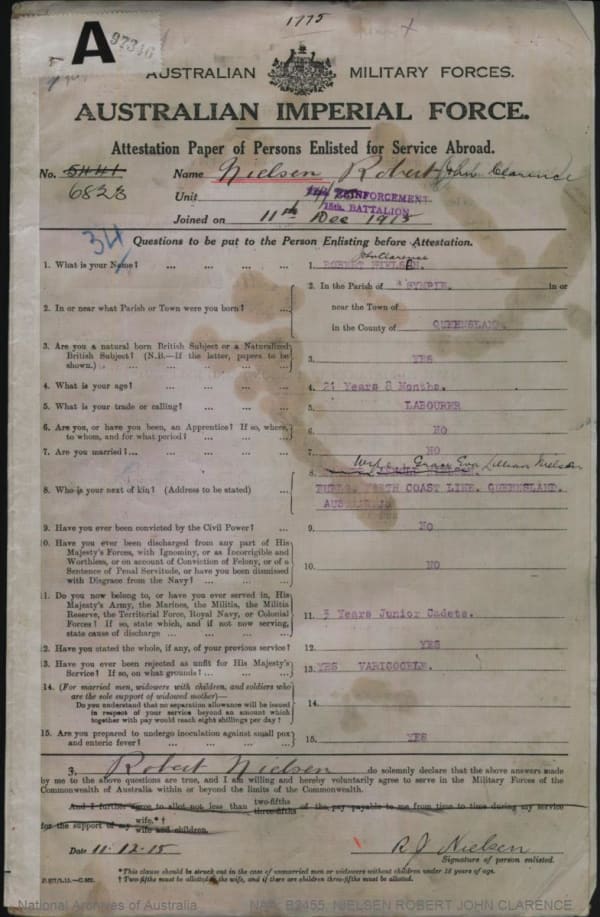 1775
A
AUSTRALIAN MILITARY FORCES.
AUSTRALIAN IMPERIAL FORCE.
Attestation Paper of Persons Enlisted for Service Abroad.
No. 5441 Name Nielsen Robert John Clarence
6823
Unit REINFORCEMENT
15th. BATTALION
Joined on 11th Dec 1915
34
Questions to be put to the Person Enlisting before Attestation.
John Clarence
1. What is your Name? ... ... ... ... 1. ROBERT NIELSEN.
2. In or near what Parish or Town were you born? ... 2. In the Parish of GYMPIE. in or
near the Town of
in the County of QUEENSLAND.
3. Are you a natural born British Subject or a Naturalized
British Subject? (N.B.—If the latter, papers to be
shown.) ... 3. YES
4. What is your age? ... ... ... ... 4. 21 Years 8 Months.
5. What is your trade or calling? ... ... ... 5. LABOURER
6. Are you, or have you been, an Apprentice? If so, where,
to whom, and for what period? ... ... ... 6. NO
7. Are you married? ... ... ... ... 7. NO
Wife Grace Eva Lillian Nielsen
8. Who is your next of kin? (Address to be stated) ... 8. NORTH COAST LINE. QUEENSLAND.
AUSTRALIA
9. Have you ever been convicted by the Civil Power? ... 9. NO
10. Have you ever been discharged from any part of His
Majesty's Forces, with Ignominy, or as Incorrigible and
Worthless, or on account of Conviction of Felony, or of a
Sentence of Penal Servitude, or have you been dismissed
with Disgrace from the Navy? ... ... ... 10. NO
11. Do you now belong to, or have you ever served in, His
Majesty's Army, the Marines, the Militia, the Militia
Reserve, the Territorial Force, Royal Navy, or Colonial
Forces? If so, state which, and if not now serving,
state cause of discharge ... ... ... ... 11. 3 Years Junior Cadets.
12. Have you stated the whole, if any, of your previous service? 12. YES
13. Have you ever been rejected as unfit for His Majesty's
Service? If so, on what grounds? ... ... ... 13. YES VARICOCELE.
14. (For married men, widowers with children, and soldiers who
are the sole support of widowed mother)—
Do you understand that no separation allowance will be issued
in respect of your service beyond an amount which
together with pay would reach eight shillings per day? 14.
15. Are you prepared to undergo inoculation against small pox
and enteric fever? ... ... ... ... 15. YES
I, Robert Nielsen do solemnly declare that the above answers made
by me to the above questions are true, and I am willing and hereby voluntarily agree to serve in the Military Forces of the
Commonwealth of Australia within or beyond the limits of the Commonwealth.
And I further agree to allot not less than two-fifths three-fifths of the pay payable to me from time to time during my service
for the support of my wife.*† wife and children.
Date 11.12.15 R J Nielsen
Signature of person enlisted.
*This clause should be struck out in the case of unmarried men or widowers without children under 18 years of age.
† Two-fifths must be allotted to the wife, and if there are children three-fifths must be allotted.
National Archives of Australia NAA: B2455, NIELSEN ROBERT JOHN CLARENCE